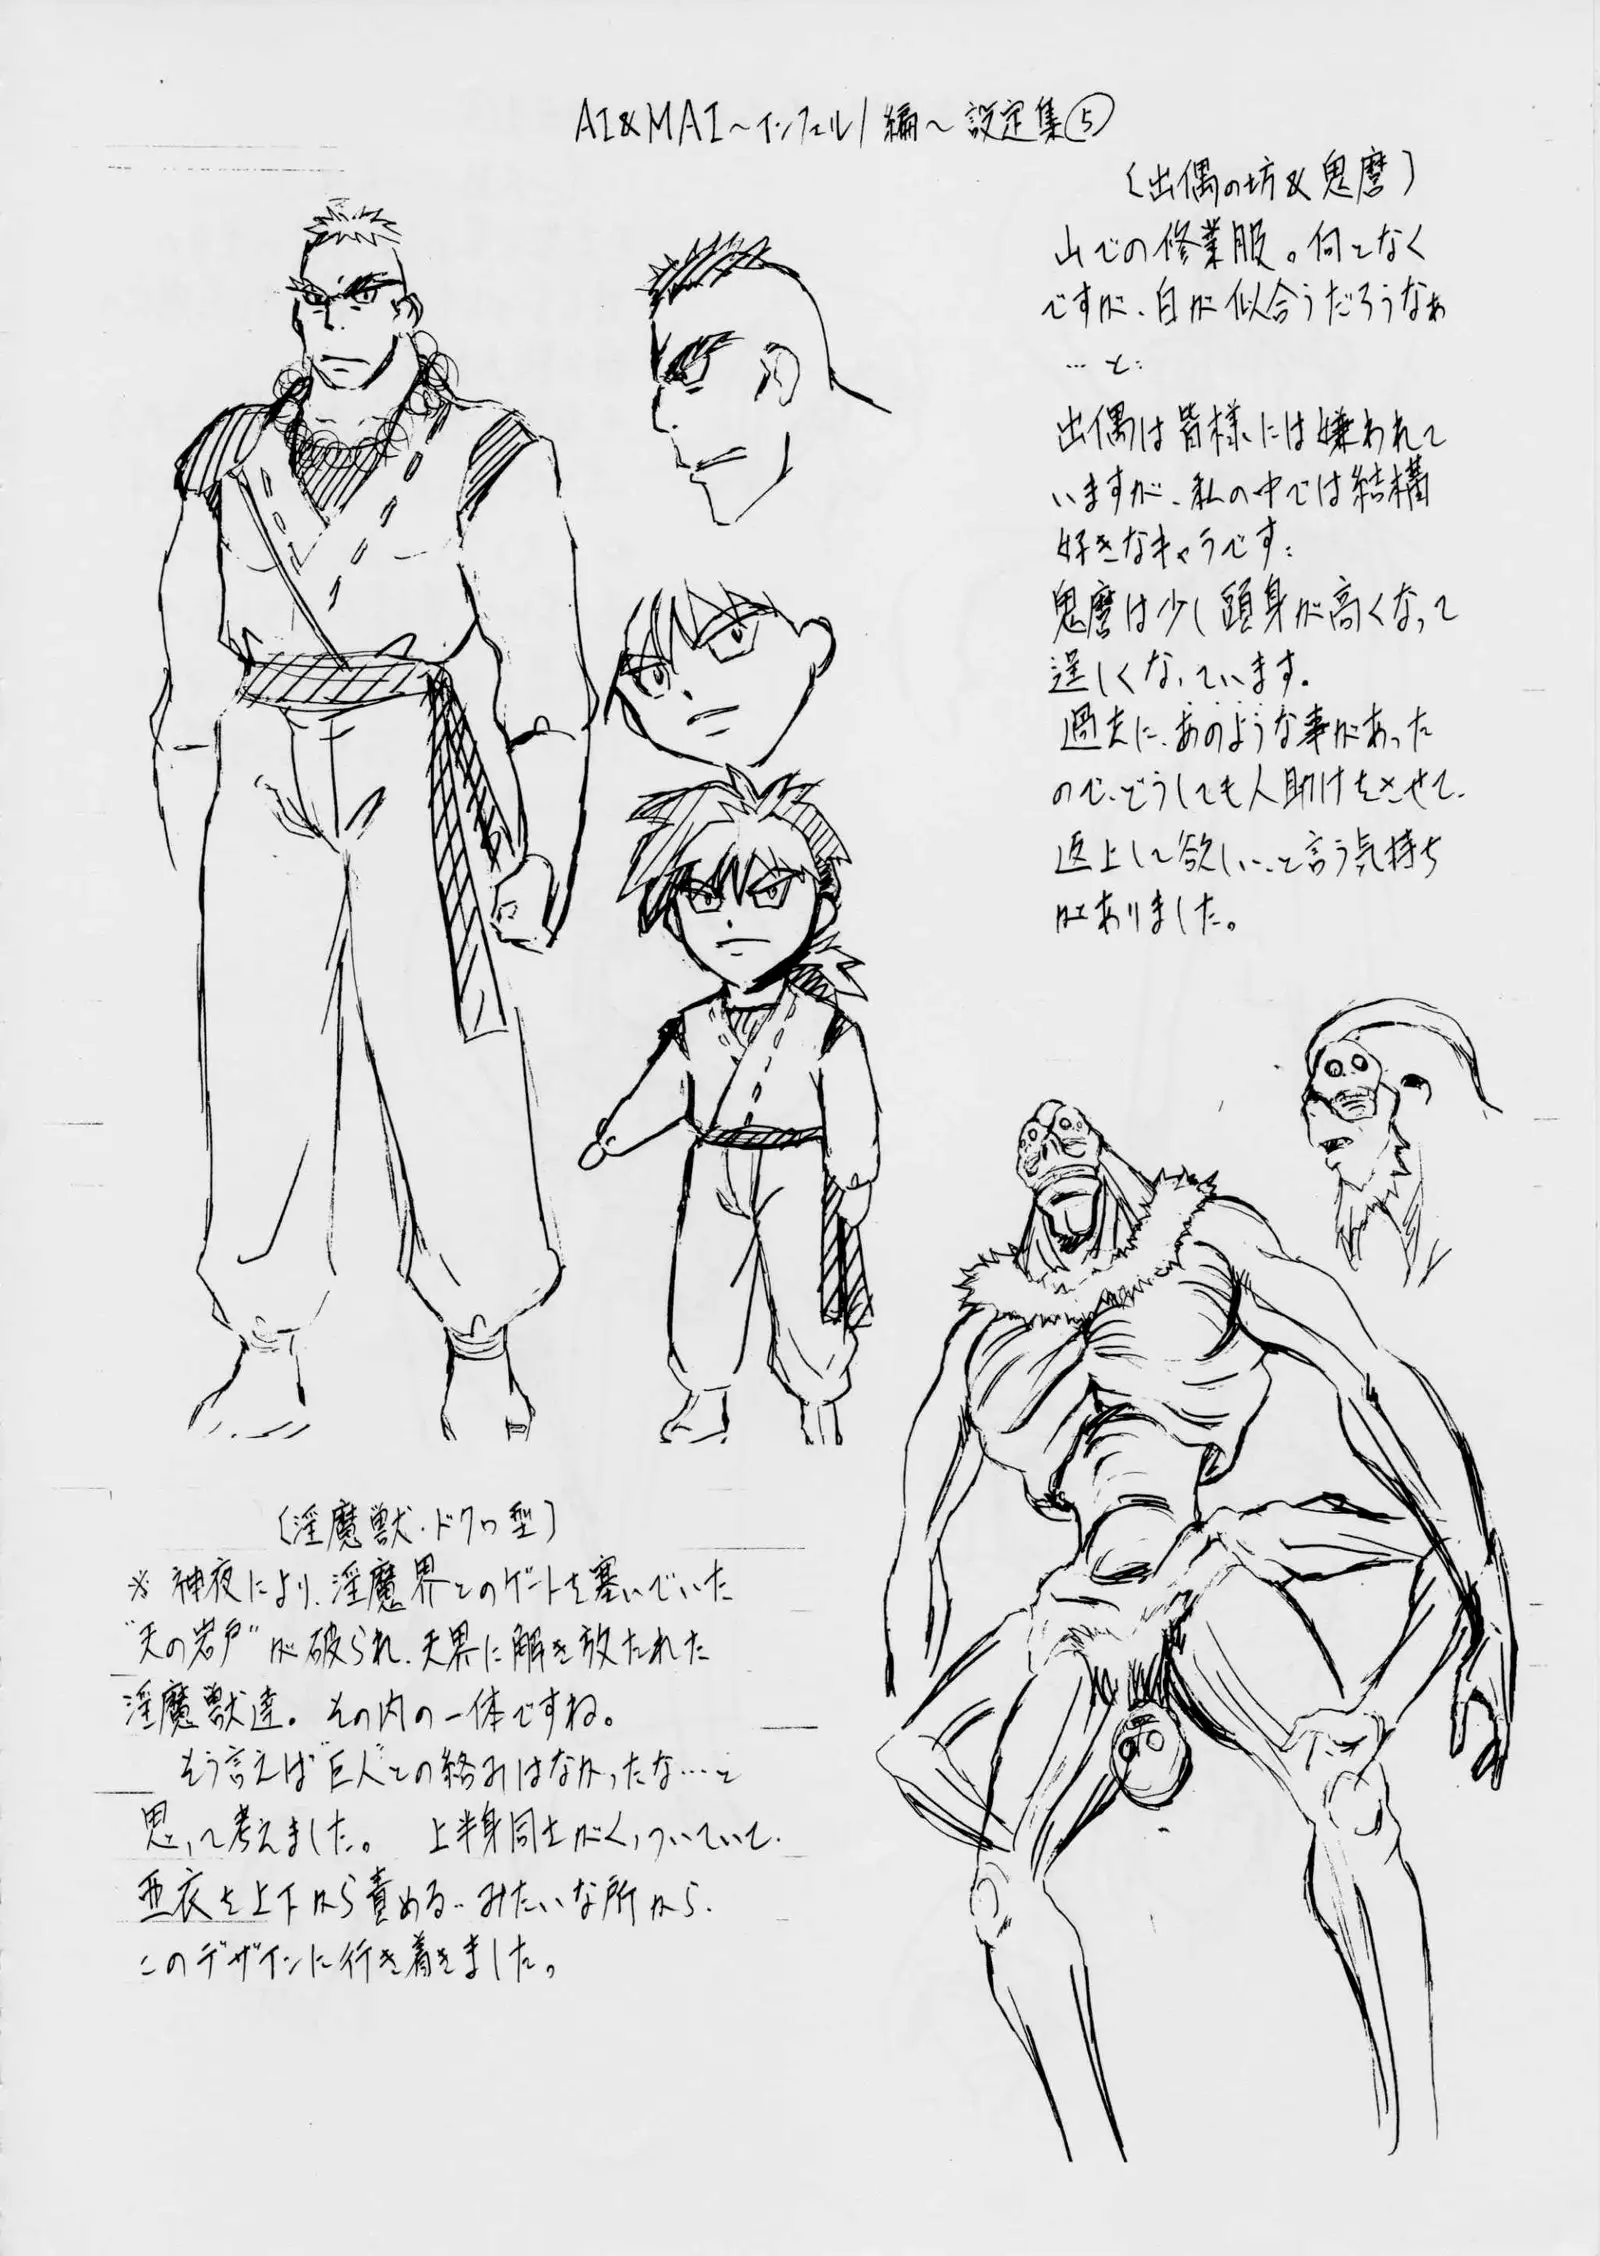 AI&MAI～インフェルノ編～設定集⑤
〔出偶の坊&鬼麿〕
山での修業服。何となく
ですが、白が似合うだろうなぁ
…と:
出偶は皆様には嫌われて
いますが、私の中では結構
好きなキャラです:
鬼麿は少し頭身が高くなって
逞しくなっています。
過去に、あのような事があった
ので、どうしても人助けをさせて、
返上して欲しい‥と言う気持ち
はありました。
〔淫魔獣・ドクロ型〕
※神夜により、淫魔界とのゲートを塞いでいた
“天の岩戸”が破られ、天界に解き放たれた
淫魔獣達。その内の一体ですね。
そう言えば“巨人”との絡みはなかったな…と
思って考えました。 上半身同士がくっついていて、
亜衣を上下から責める‥みたいな所から、
このデザインに行き着きました。